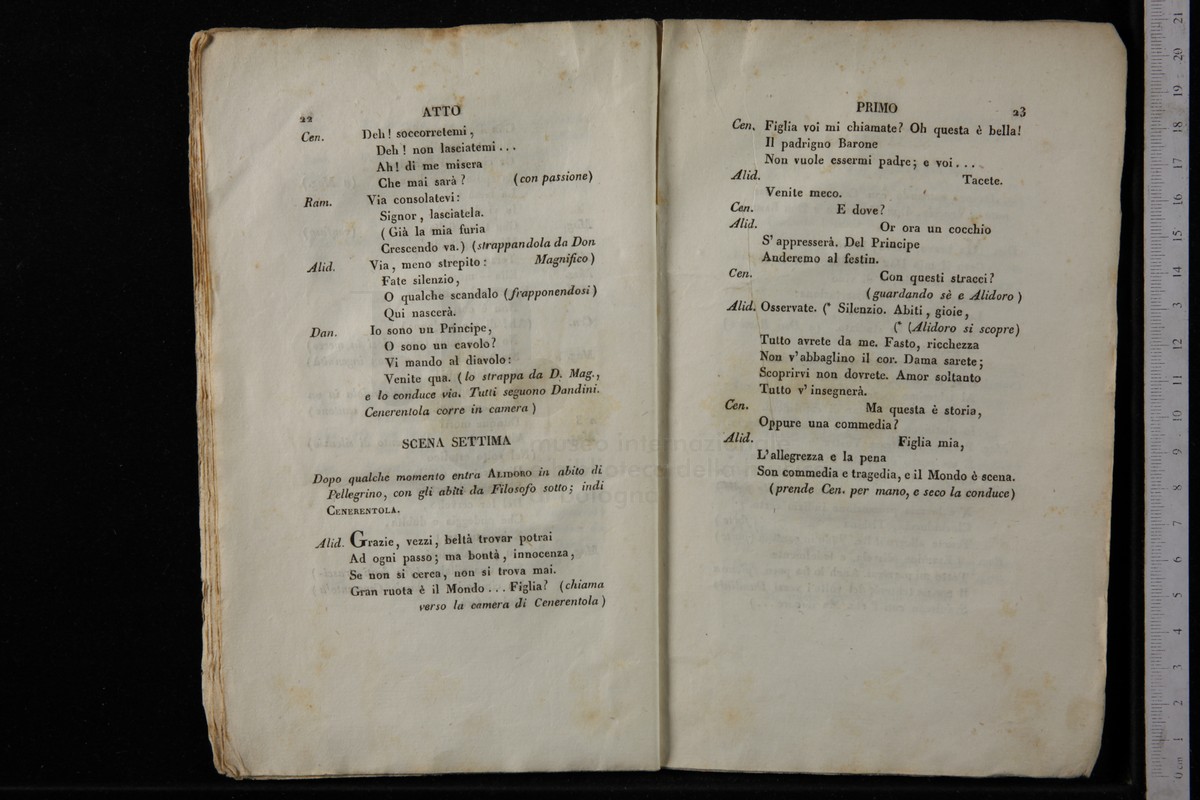 22 ATTO
Cen. Deh! soccorretemi,
Deh! non lasciatemi...
Ah! di me misera
Che mai sarà? (con passione)
Ram. Via consolatevi:
Signor, lasciatela.
(Già la mia furia
Crescendo va.) (strappandola da Don
Alid. Via, meno strepito: Magnifico)
Fate silenzio,
O qualche scandalo (frapponendosi)
Qui nascerà.
Dan. Io sono un Principe,
O sono un cavolo?
Vi mando al diavolo:
Venite qua. (lo strappa da D. Mag.,
e lo conduce via. Tutti seguono Dandini.
Cenerentola corre in camera)
SCENA SETTIMA
Dopo qualche momento entra ALIDORO in abito di
Pellegrino, con gli abiti da Filosofo sotto; indi
CENERENTOLA.
Alid. Grazie, vezzi, beltà trovar potrai
Ad ogni passo; ma bontà, innocenza,
Se non si cerca, non si trova mai.
Gran ruota è il Mondo... Figlia? (chiama
verso la camera di Cenerentola)
PRIMO 23
Cen. Figlia voi mi chiamate? Oh questa è bella!
Il padrigno Barone
Non vuole essermi padre; e voi....
Alid. Tacete.
Venite meco.
Cen. E dove?
Alid. Or ora un cocchio
S'appresserà. Del Principe
Anderemo al festin.
Cen. Con questi stracci?
(guardando sè e Alidoro)
Alid. Osservate. (* Silenzio. Abiti, gioie,
(* (Alidoro si scopre)
Tutto avrete da me. Fasto, ricchezza
Non v'abbaglino il cor. Dama sarete;
Scoprirvi non dovrete. Amor soltanto
Tutto v'insegnerà.
Cen. Ma questa è storia,
Oppure una commedia?
Alid. Figlia mia,
L'allegrezza e la pena
Son commedia e tragedia, e il Mondo è scena.
(prende Cen. per mano, e seco la conduce)
museo internazionale
e biblioteca della
di bologna
0 cm 1 2 3 4 5 6 7 8 9 10 11 12 13 14 15 16 17 18 19 20 21